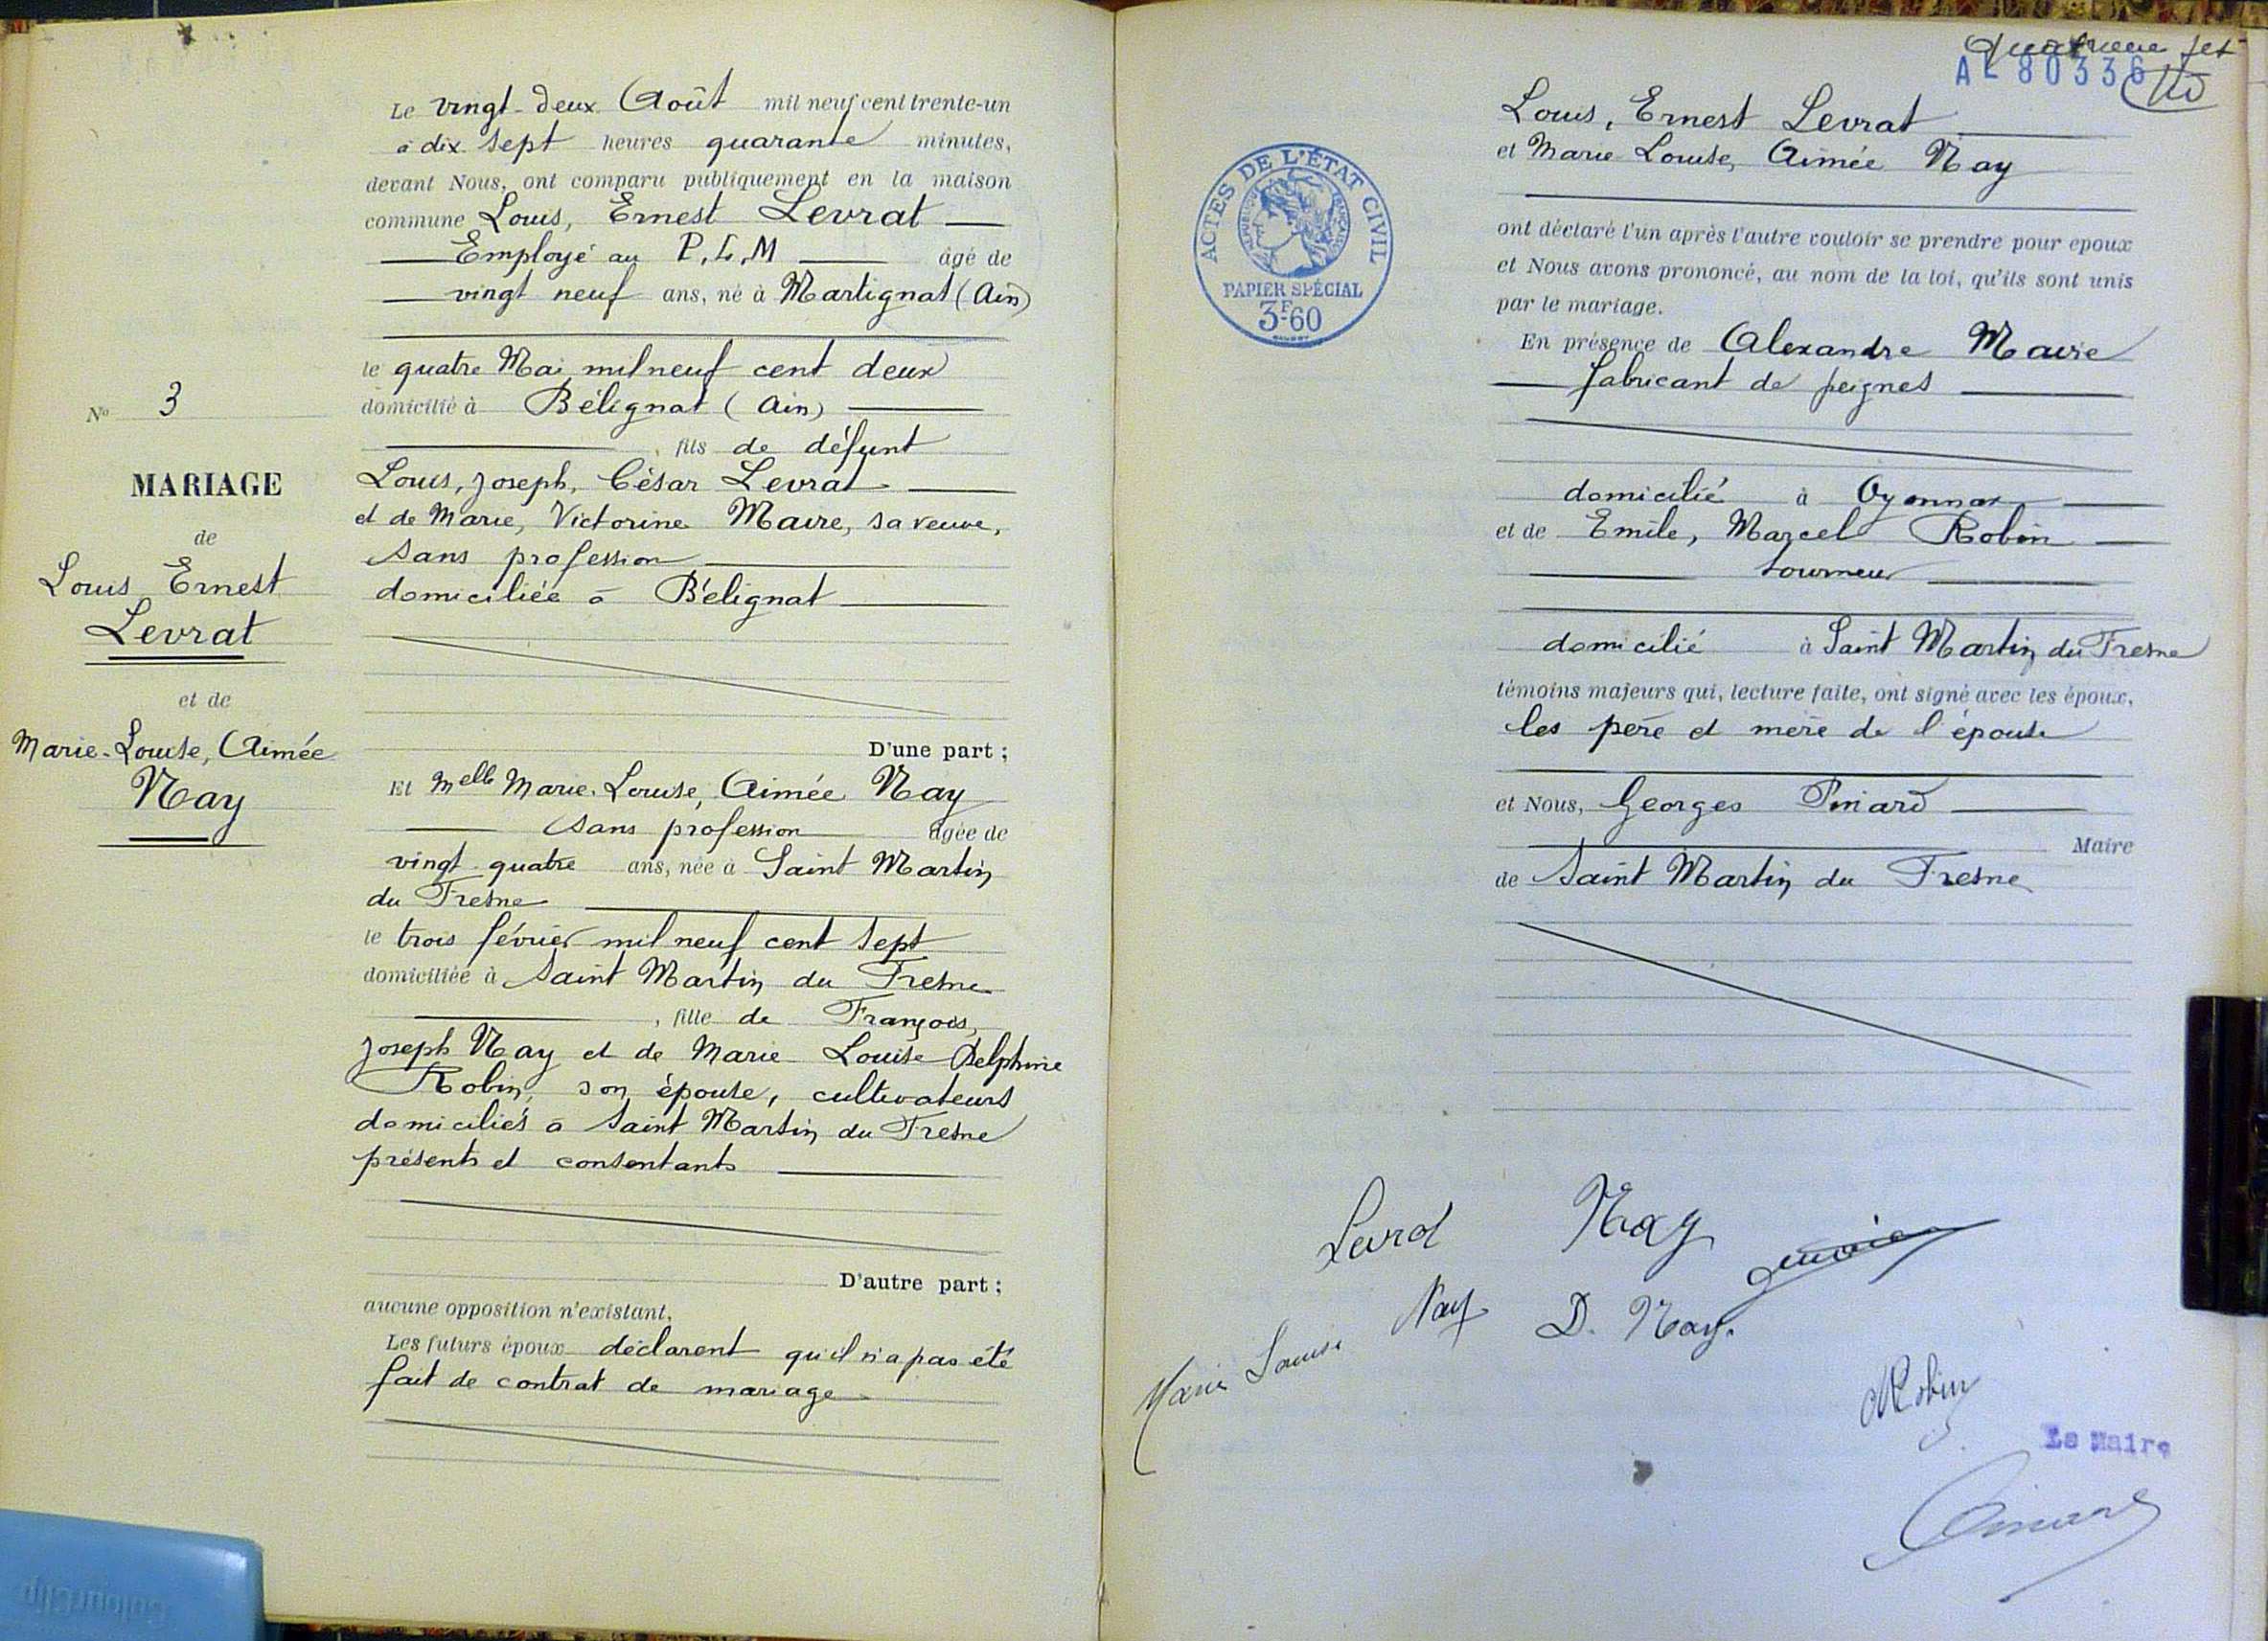 Nº 3
MARIAGE
de
Louis Ernest
Levrat
et de
Marie-Louise, Aimée
Nay
Le vingt-deux Août mil neuf cent trente-un
à dix sept heures quarante minutes,
devant Nous, ont comparu publiquement en la maison
commune Louis, Ernest Levrat
Employé au P.L.M âgé de
vingt neuf ans, né à Martignat (Ain)
le quatre Mai mil neuf cent deux
domicilié à Bélignat (Ain)
, fils de défunt
Louis, Joseph, César Levrat
et de Marie, Victorine Maire, sa veuve,
sans profession
domiciliée à Bélignat
D'une part ;
Et Melle Marie-Louise, Aimée Nay
sans profession âgée de
vingt quatre ans, née à Saint Martin
du Fresne
le trois février mil neuf cent sept
domiciliée à Saint Martin du Fresne
, fille de François,
Joseph Nay et de Marie Louise Delphine
Robin, son épouse, cultivateurs
domiciliés à Saint Martin du Fresne
présents et consentants
D'autre part ;
aucune opposition n'existant.
Les futurs époux déclarent qu'il n'a pas été
fait de contrat de mariage
AL 80336
Louis, Ernest Levrat
et Marie Louise, Aimée Nay
ACTES DE L'ÉTAT CIVIL
RÉPUBLIQUE FRANÇAISE
PAPIER SPÉCIAL
3F60
ont déclaré l'un après l'autre vouloir se prendre pour epoux
et Nous avons prononcé, au nom de la loi, qu'ils sont unis
par le mariage.
En présence de Alexandre Maire
fabricant de peignes
domicilié à Oyonnax
et de Emile, Marcel Robin
tourneur
domicilié à Saint Martin du Fresne
témoins majeurs qui, lecture faite, ont signé avec les époux,
les père et mère de l'épouse
et Nous, Georges Pinard
Maire
de Saint Martin du Fresne
Levrat Nay
Marie Louise Nay D. Nay.
Robin
Le Maire